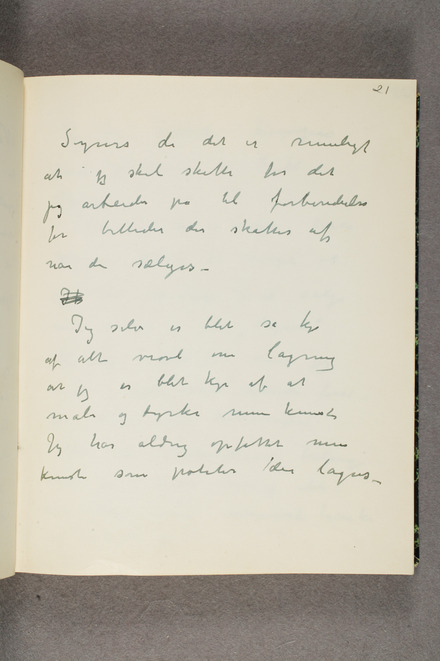 21
Synes du det er rimeligt
at jeg skal skatte for det
jeg arbeider på til forberedelse
for billeder der skattes af
når de sælges –
Jeg selv er blet så kje
af alt vrøvl om lagring
at jeg er blet kje af at
male og dyrke min kunst
Jeg har aldrig opfattet min
kunst som poteter der lagres –